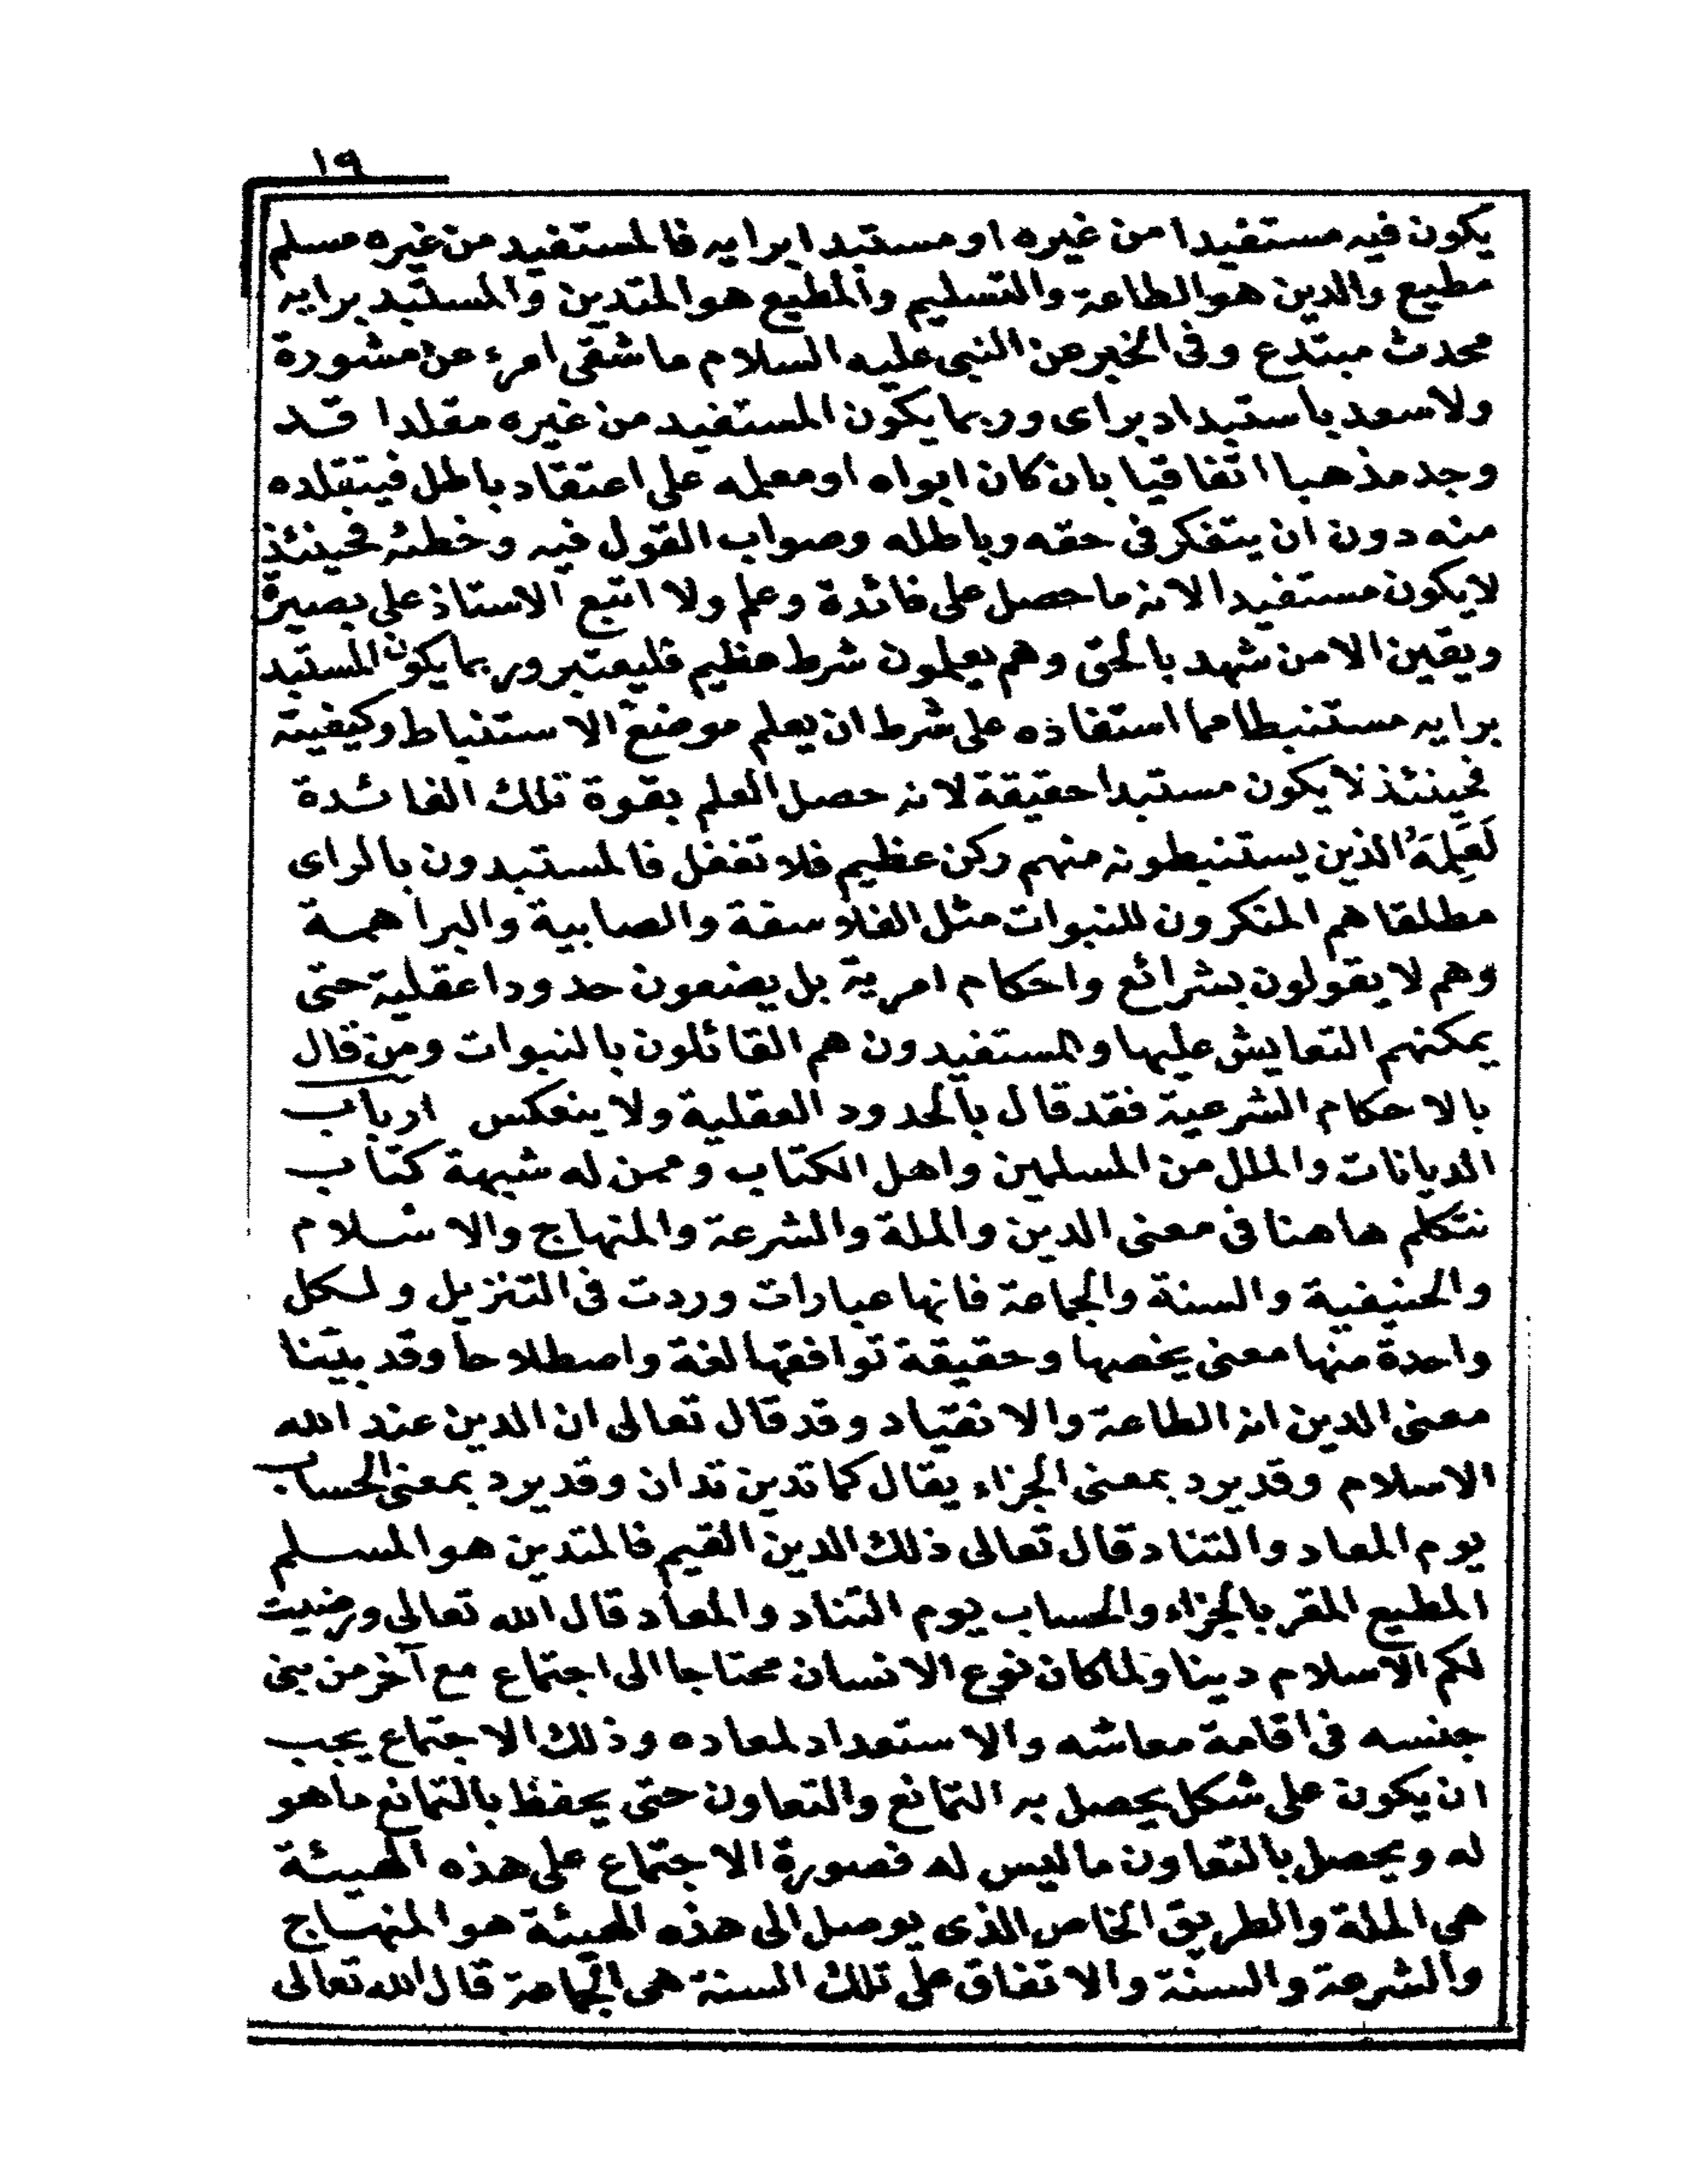 ١٩
يكون فيه مستفيدا من غيره او مستبدا برايه فالمستفيد من غيره مسلم
مطيع والدين هو الطاعة والتسليم والمطيع هو المتدين والمستبد برايه
محدث مبتدع وفى الخبر عن النبى عليه السلام ما شقى امرء عن مشورة
ولا سعد باستبداد براى وربما يكون المستفيد من غيره مقلدا قد
وجد مذهبا اتفاقيا بان كان ابواه او معلمه على اعتقاد باطل فيتقلده
منه دون ان يتفكر فى حقه وباطله وصواب القول فيه وخطئه فحينئذ
لا يكون مستفيدا لانه ما حصل على فائدة وعلم ولا اتبع الاستاذ على بصيرة
ويقين الا من شهد بالحق وهم يعلمون شرط عظيم فليعتبر وربما يكون المستبد
برايه مستنبطا مما استفاده على شرط ان يعلم موضع الاستنباط وكيفيته
فحينئذ لا يكون مستبدا حقيقة لانه حصل العلم بقوة تلك الفائدة
لَعَلِمَهُ الذين يستنبطونه منهم ركن عظيم فلا تغفل فالمستبدون بالراى
مطلقا هم المنكرون للنبوات مثل الفلاسفة والصابية والبراهمة
وهم لا يقولون بشرائع واحكام امرية بل يضعون حدودا عقلية حتى
يمكنهم التعايش عليها والمستفيدون هم القائلون بالنبوات ومن قال
بالاحكام الشرعية فقد قال بالحدود العقلية ولا ينعكس ارباب
الديانات والملل من المسلمين واهل الكتاب وممن له شبهة كتاب
نتكلم هاهنا فى معنى الدين والملة والشرعة والمنهاج والاسلام
والحنيفية والسنة والجماعة فانها عبارات وردت فى التنزيل ولكل
واحدة منها معنى يخصها وحقيقة توافقها لغة واصطلاحا وقد بيّنا
معنى الدين انه الطاعة والانقياد وقد قال تعالى ان الدين عند الله
الاسلام وقد يرد بمعنى الجزاء يقال كما تدين تدان وقد يرد بمعنى الحساب
يوم المعاد والتناد قال تعالى ذلك الدين القيم فالمتدين هو المسلم
المطيع المقر بالجزاء والحساب يوم التناد والمعاد قال الله تعالى ورضيت
لكم الاسلام دينا ولما كان نوع الانسان محتاجا الى اجتماع مع آخر من بنى
جنسه فى اقامة معاشه والاستعداد لمعاده وذلك الاجتماع يجب
ان يكون على شكل يحصل به التمانع والتعاون حتى يحفظ بالتمانع ما هو
له ويحصل بالتعاون ما ليس له فصورة الاجتماع على هذه الهيئة
هى الملة والطريق الخاص الذى يوصل الى هذه الهيئة هو المنهاج
والشرعة والسنة والاتفاق على تلك السنة هى الجماعة قال الله تعالى